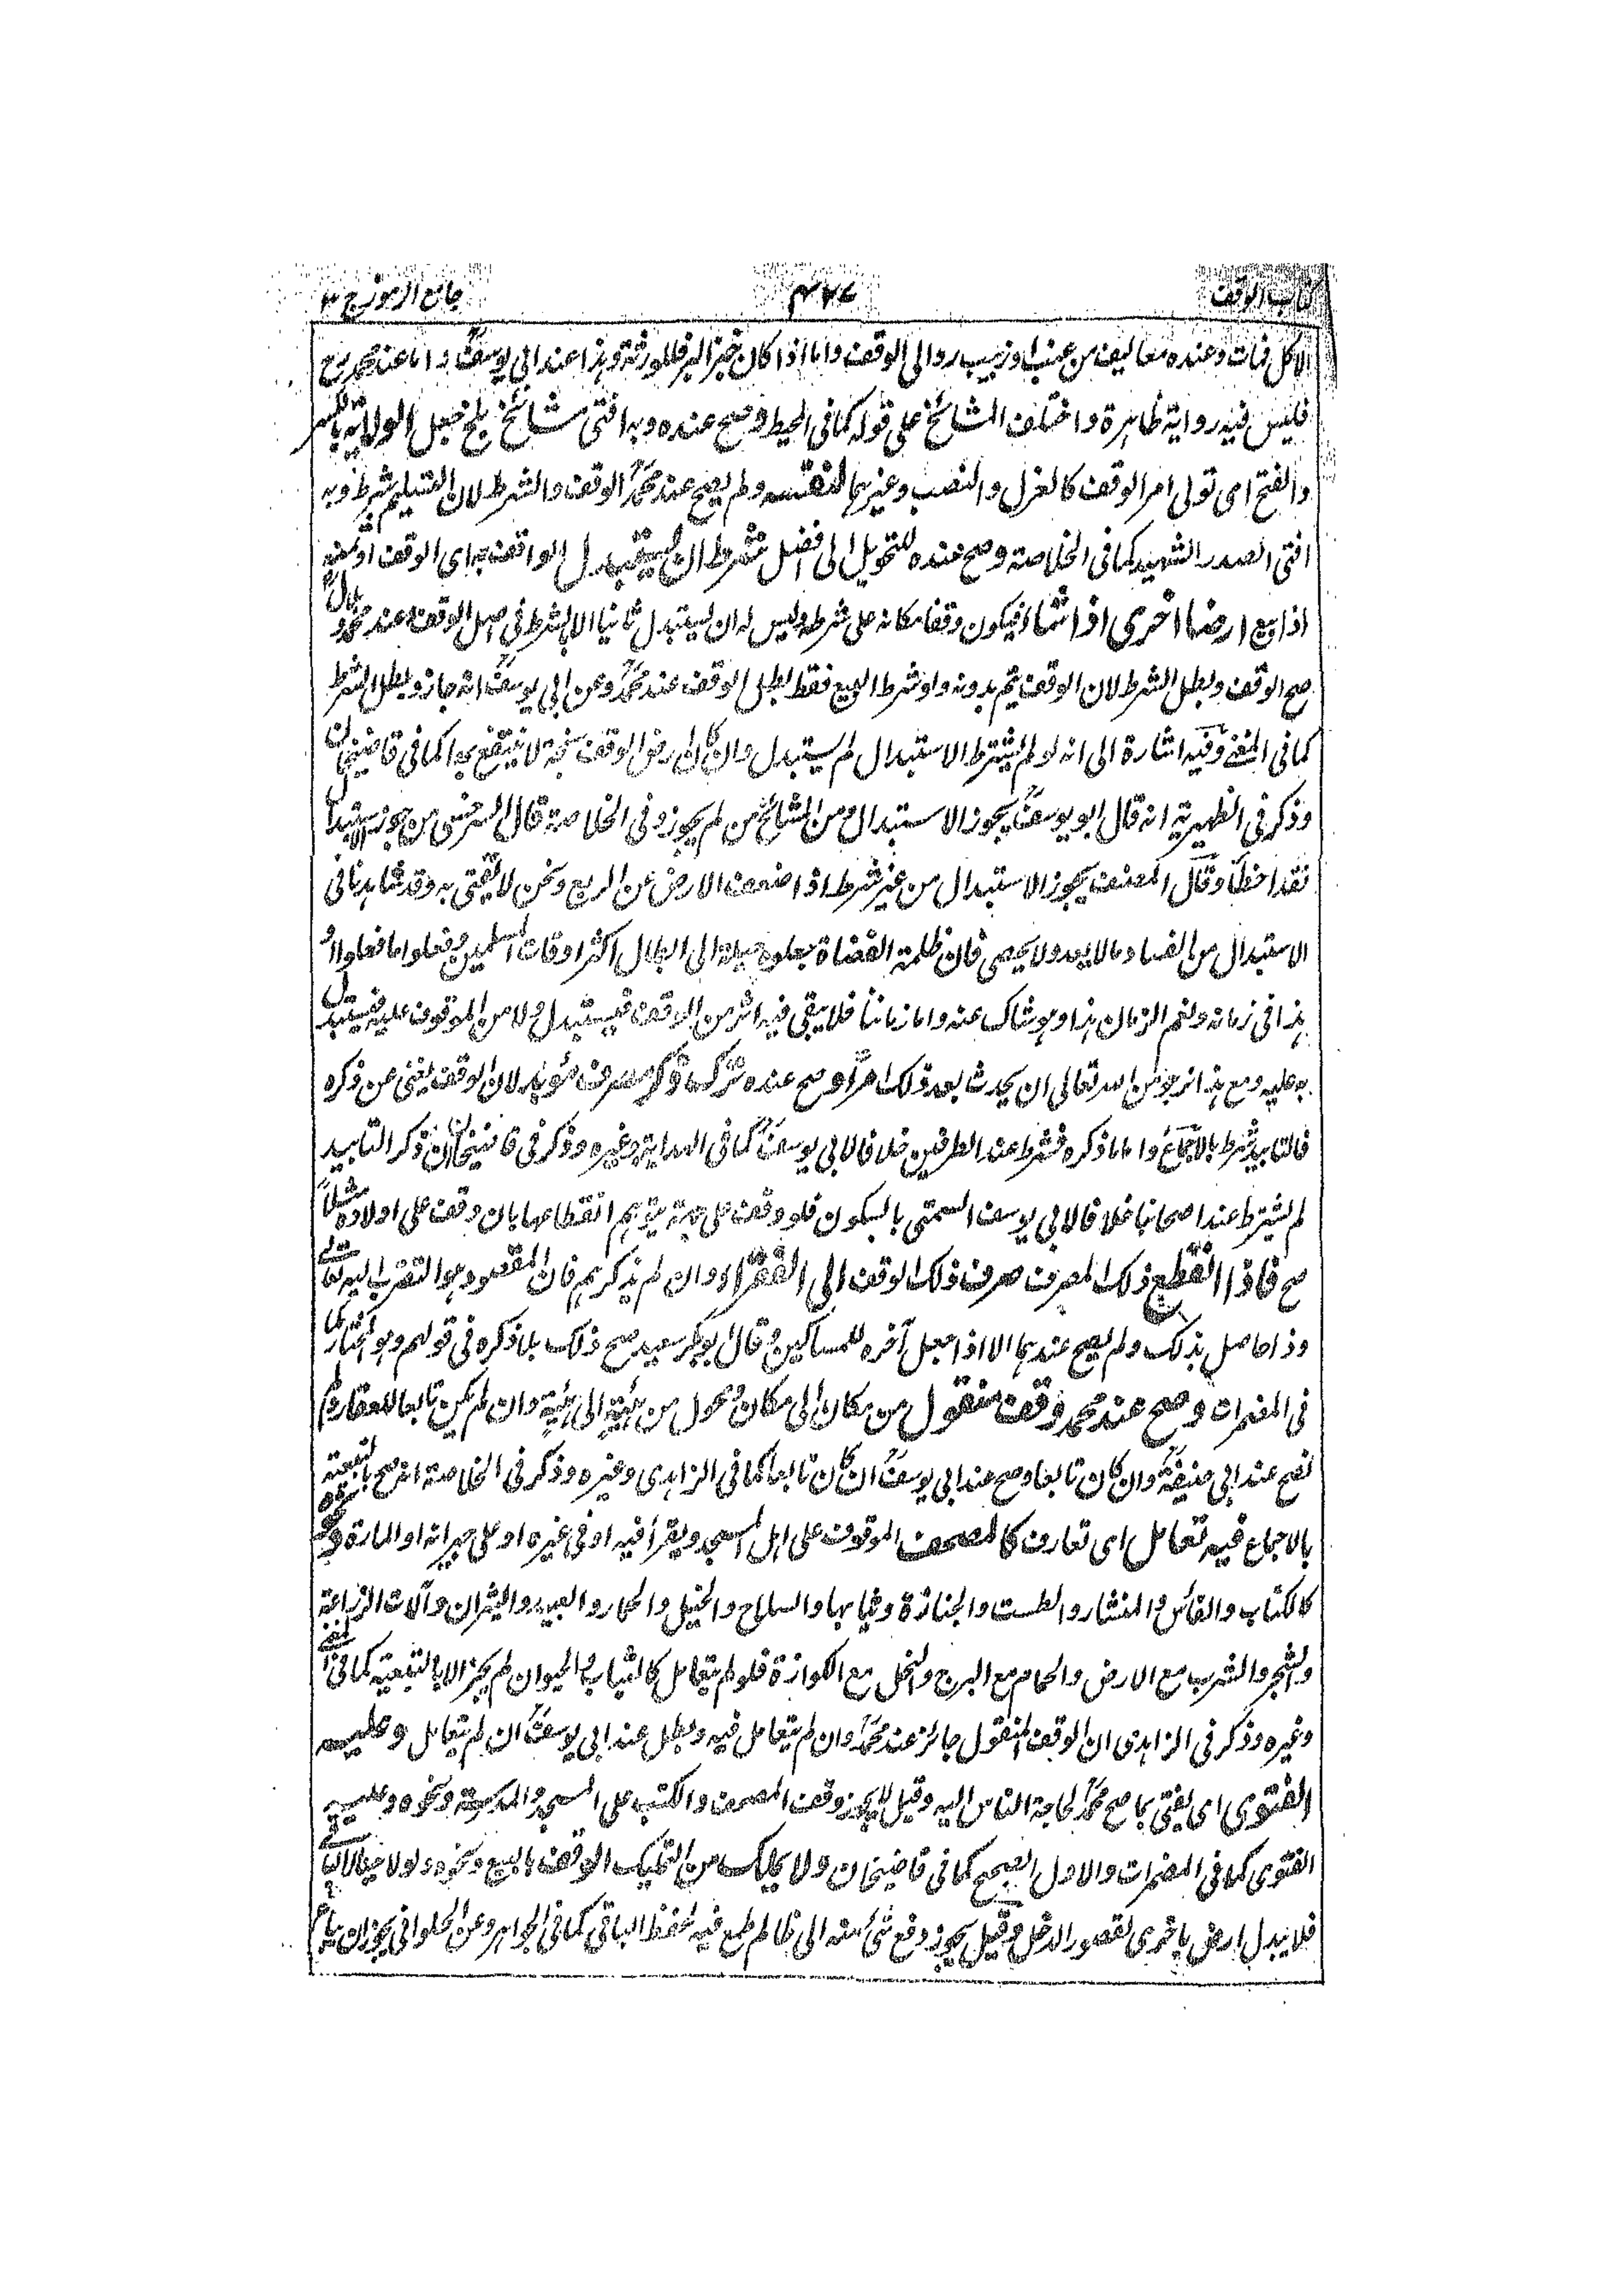 كتاب الوقف
جامع الرموز ج ٣
الاكل فمات وعنده معاليف من عنب او زبيب رد الى الوقف واما اذا كان خبز البر فللورثة وهذا عند ابي يوسفؒ واما عند محمدرح
فليس فيه رواية ظاهرة واختلف المشائخ على قوله كما في المحيط وصح عنده وبه افتى مشائخ بلخ جعل الولاية بالكسر
والفتح اى تولى امر الوقف كالعزل والنصب وغيرهما لنفسه ولم يصح عند محمدؒ الوقف والشرط لان التسليم شرط وبه
افتى الصدر الشهيد كما في الخلاصة وصح عنده للتحويل الى افضل شرط ان يستبدل الواقف به اى الوقف او ثمنه
اذا بيع ارضا اخرى اذا شاء فيكون وقفا مكانه على شرطه وليس له ان يستبدل ثانيا الا بشرط في اصل الوقف وعند محمدؒ وهلالؒ
صح الوقف وبطل الشرط لان الوقف يتم بدونه ولو شرط البيع فقط بطل الوقف عند محمدؒ وعن ابي يوسفؒ انه جاز وبطل الشرط
كما في المغني وفيه اشارة الى انه لو لم يشترط الاستبدال لم يستبدل وان كان ارض الوقف سبخة لا ينتفع بها كما في قاضيخان
وذكر في الظهيرية انه قال ابو يوسفؒ يجوز الاستبدال ومن المشائخ من لم يجوز وفي الخلاصة قال السرخسي من جوز الاستبدال
فقد اخطأ وقال المصنف يجوز الاستبدال من غير شرط اذا ضعف الارض عن الريع ونحن لا نفتي به وقد شاهدنا في
الاستبدال من الفساد ما لا يعد ولا يحصى فان ظلمة القضاة جعلوه حيلة الى ابطال اكثر اوقاف المسلمين وفعلوا ما فعلوا او
هذا في زمانه ونعم الزمان هذا وهو شاك عنه واما زماننا فلا يبقى فيه اثر من الوقف فيستبدل ولا من الموقوف عليه فيستبدل
به عليه ومع هذا نرجو من الله تعالى ان يحدث بعد ذلك امرا وصح عنده ترك ذكر مصرف مؤبد لان الوقف يغني عن ذكره
فالتابيد شرط بالاجماع واما ذكره فشرط عند الطرفين خلافا لابي يوسفؒ كما في الهداية وغيره وذكر في قاضيخان ان ذكر التابيد
لم يشترط عند اصحابنا خلافا لابي يوسف السمتي بالسكون فلو وقف على جهة يتوهم انقطاعها بان وقف على اولاده مثلاً
صح فاذا انقطع ذلك المصرف صرف ذلك الوقف الى الفقراء وان لم يذكرهم فان المقصود هو التقرب اليه تعالى
وذا حاصل بذلك ولم يصح عندهما الا اذا جعل آخره للمساكين وقال ابو بكر سعيد صح ذلك بلا ذكره في قولهم وهو المختار كما
في المضمرات وصح عند محمد وقف منقول من مكان الى مكان ومحول من هيئة الى هيئة وان لم يكن تابعا للعقار ولم
يصح عند ابي حنيفةؒ وان كان تابعا وصح عند ابي يوسفؒ ان كان تابعا كما في الزاهدى وغيره وذكر في الخلاصة انه صح بالتبعية
بالاجماع فيه تعامل اى تعارف كالمصحف الموقوف على اهل المسجد ويقرأ فيه او في غيره او على جيرانه او المارة ونحوه
كالكتاب والفأس والمنشار والطست والجنازة وثيابها والسلاح والخيل والحمار والعبيد والثيران وآلات الزراعة
والشجر والشرب مع الارض والحمام مع البرج والنحل مع الكوارة فلو لم يتعامل كالثياب والحيوان لم يجز الا بالتبعية كما في المغني
وغيره وذكر في الزاهدى ان الوقف المنقول جائز عند محمدؒ وان لم يتعامل فيه وبطل عند ابي يوسفؒ ان لم يتعامل وعليه
الفتوى اى يفتى بما صح محمدؒ لحاجة الناس اليه وقيل لا يجوز وقف المصحف والكتب على المسجد والمدرسة ونحوه وعليه
الفتوى كما في المضمرات والاول الصحيح كما في قاضيخان ولا يملك من التمليك الوقف بالبيع ونحوه ولو لاحياء الباقي
فلا يبدل ارض باخرى لقصور الدخل وقيل يجوز دفع شئ منه الى ظالم طمع فيه لحفظ الباقي كما في الجواهر وعن الحلوانى يجوز ان يباع